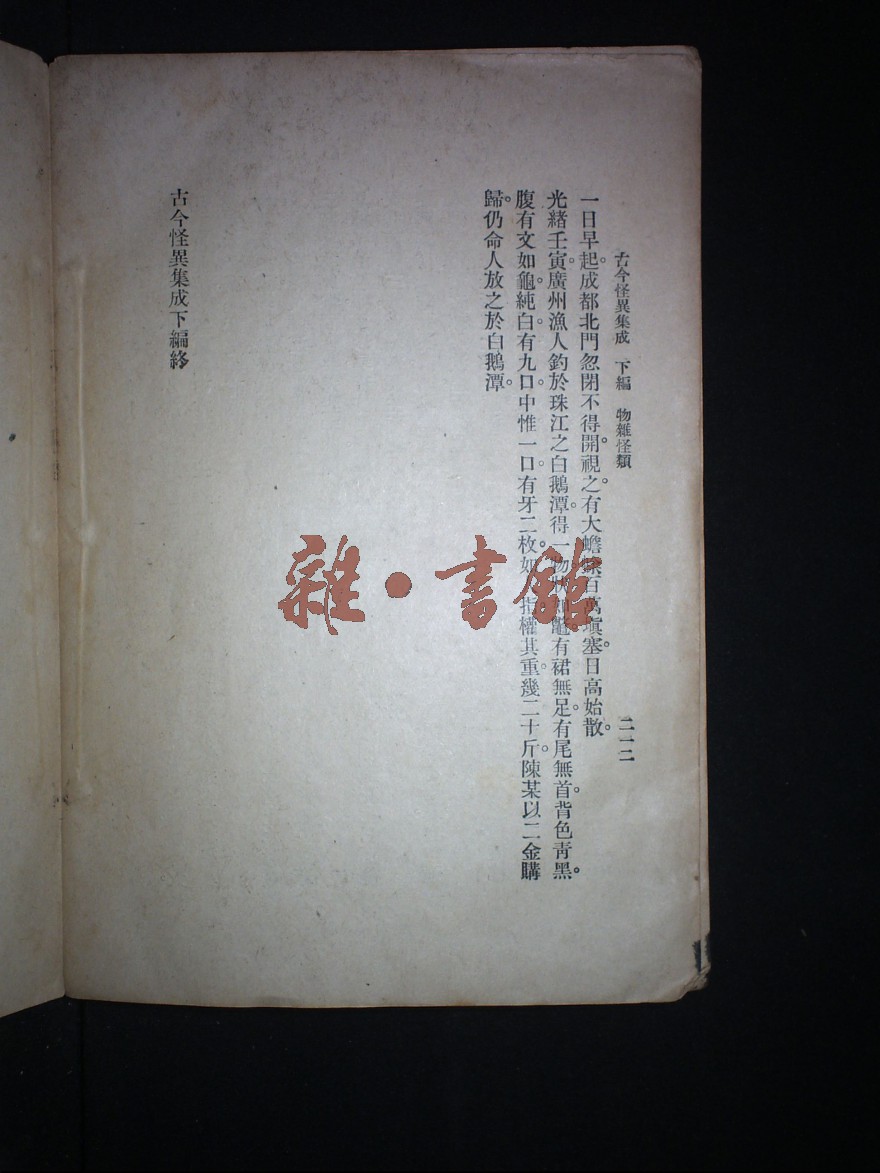 古今怪異集成　下編　物雜怪類　二一二
一日早起。成都北門忽閉不得開。視之。有大蟾蜍百萬塡塞。日高始散。
光緒壬寅。廣州漁人釣於珠江之白鵝潭。得一物。狀如龜。有裙無足。有尾無首。背色靑黑。
腹有文如龜。純白。有九口。中惟一口。有牙二枚。如指。權其重。幾二十斤。陳某以二金購
歸。仍命人放之於白鵝潭。
古今怪異集成下編終
雜·書館